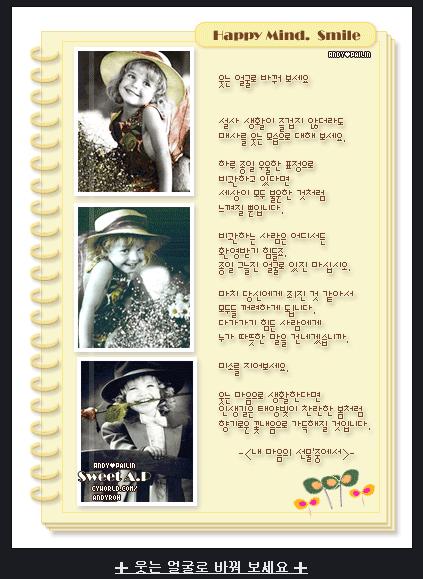 Happy Mind. Smile
ANDY♥PAILIN
웃는 얼굴로 바꿔 보세요
설사 생활이 즐겁지 않더라도
매사를 웃는 모습으로 대해 보세요.
하루 종일 우울한 표정으로
비관하고 있다면
세상이 모두 불운한 것처럼
느껴질 뿐입니다.
비관하는 사람은 어디서든
환영받기 힘들죠.
종일 그늘진 얼굴로 있진 마십시오.
마치 당신에게 죄진 것 같아서
모두들 꺼려하게 됩니다.
다가가기 힘든 사람에게
누가 따뜻한 말을 건네겠습니까.
미소를 지어보세요.
웃는 마음으로 생활한다면
인생길은 태양빛이 찬란한 봄처럼
향기로운 꽃내음으로 가득해질 것입니다.
-<내 마음의 선물중에서>-
ANDY♥PAILIN
Sweet A.P
CYWORLD.COM/
ANDYROH
+ 웃는 얼굴로 바꿔 보세요 +